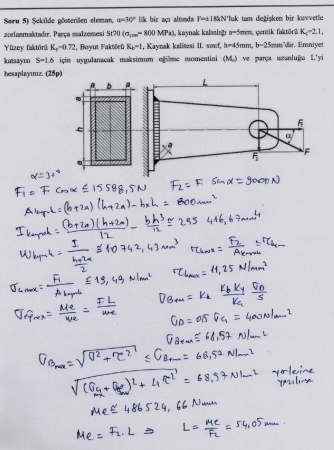 Soru 5) Şekilde gösterilen eleman, α=30° lik bir açı altında F=±18kN'luk tam değişken bir kuvvetle
zorlanmaktadır. Parça malzemesi St70 (σçem= 800 MPa), kaynak kalınlığı a=5mm, çentik faktörü Kç=2.1,
Yüzey faktörü Ky=0.72, Boyut Faktörü Kb=1, Kaynak kalitesi II. sınıf, h=45mm, b=25mm'dir. Emniyet
katsayısı S=1.6 için uygulanacak maksimum eğilme momentini (Me) ve parça uzunluğu L'yi
hesaplayınız. (25p)
a b a
L
a
h
a
a
F1
α
F2
F
α=30°
F1 = F cosα ≅ 15588,5N F2 = F sinα = 9000N
Akaynak = (b+2a)(h+2a) - bxh = 800mm²
Ikaynak = (b+2a)(h+2a)³/12 - bh³/12 ≅ 295 416,67mm⁴
Wkaynak = I/((h+2a)/2) ≅ 10742,43mm³
τkmax = F2/Akaynak ≤ τkem
σçmax = F1/Akaynak ≅ 19,49 N/mm²
τkmax = 11,25 N/mm²
σeğmax = Me/We = F.L/We
σBem = Kk Kb Ky/Kç σD/S
σD = 0,5 σç = 400N/mm²
σBem ≅ 68,57 N/mm²
σBmax = √σ²+τ² ≤ σBem = 68,57 N/mm²
√(σçmax + σeğmax)² + 4τ² = 68,57 N/mm² yerlerine yazılırsa
Me ≅ 486524,66 Nmm
Me = F2.L ⇒ L = Me/F2 = 54,05mm.